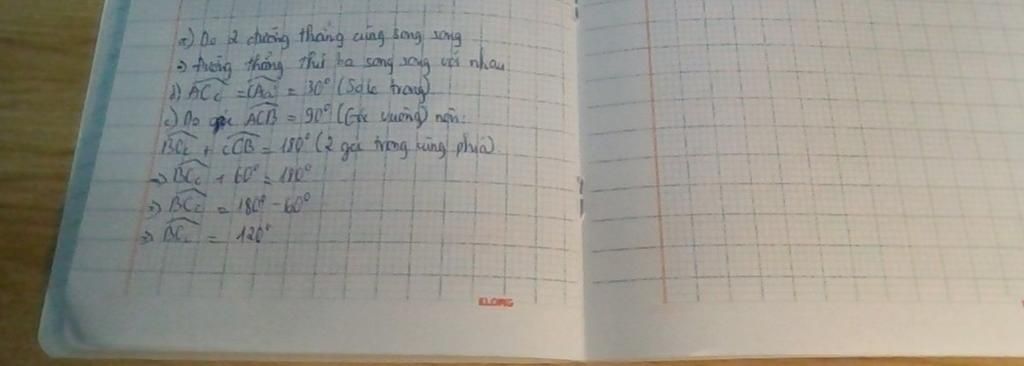 a) Do 2 đường thẳng cùng song song
=> đường thẳng thứ ba song song với nhau
b) ACc = CAa = 30° (So le trong)
c) Do góc ACB = 90° (Góc vuông) nên:
BCc + cCB = 180° (2 góc trong cùng phía)
=> BCc + 60° = 180°
=> BCc = 180° - 60°
=> BCc = 120°
KLONG